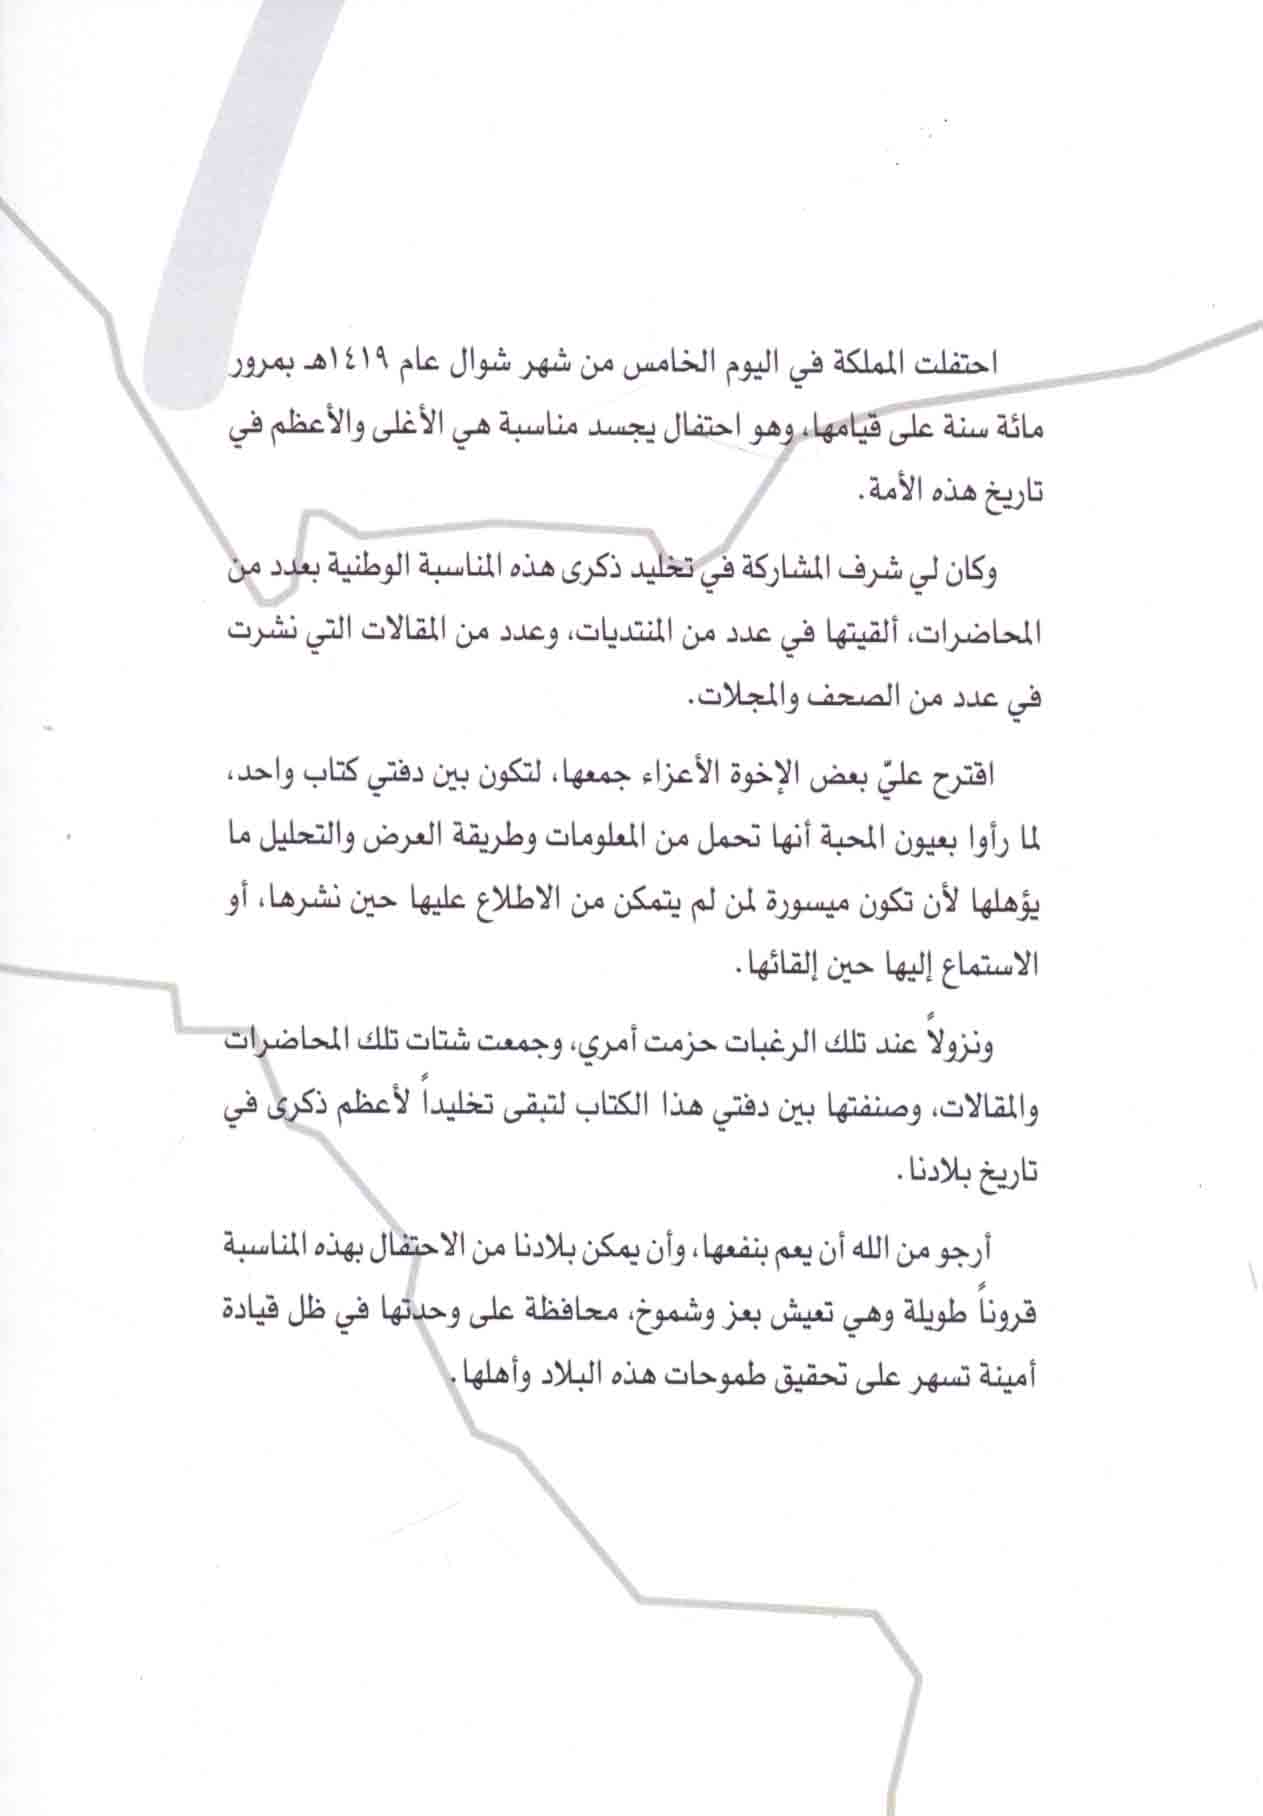 احتفلت المملكة في اليوم الخامس من شهر شوال عام ١٤١٩هـ بمرور
مائة سنة على قيامها، وهو احتفال يجسد مناسبة هي الأغلى والأعظم في
تاريخ هذه الأمة.
وكان لي شرف المشاركة في تخليد ذكرى هذه المناسبة الوطنية بعدد من
المحاضرات، ألقيتها في عدد من المنتديات، وعدد من المقالات التي نشرت
في عدد من الصحف والمجلات.
اقترح عليّ بعض الإخوة الأعزاء جمعها، لتكون بين دفتي كتاب واحد،
لما رأوا بعيون المحبة أنها تحمل من المعلومات وطريقة العرض والتحليل ما
يؤهلها لأن تكون ميسورة لمن لم يتمكن من الاطلاع عليها حين نشرها، أو
الاستماع إليها حين إلقائها.
ونزولاً عند تلك الرغبات حزمت أمري، وجمعت شتات تلك المحاضرات
والمقالات، وصنفتها بين دفتي هذا الكتاب لتبقى تخليداً لأعظم ذكرى في
تاريخ بلادنا.
أرجو من الله أن يعم بنفعها، وأن يمكن بلادنا من الاحتفال بهذه المناسبة
قروناً طويلة وهي تعيش بعز وشموخ، محافظة على وحدتها في ظل قيادة
أمينة تسهر على تحقيق طموحات هذه البلاد وأهلها.